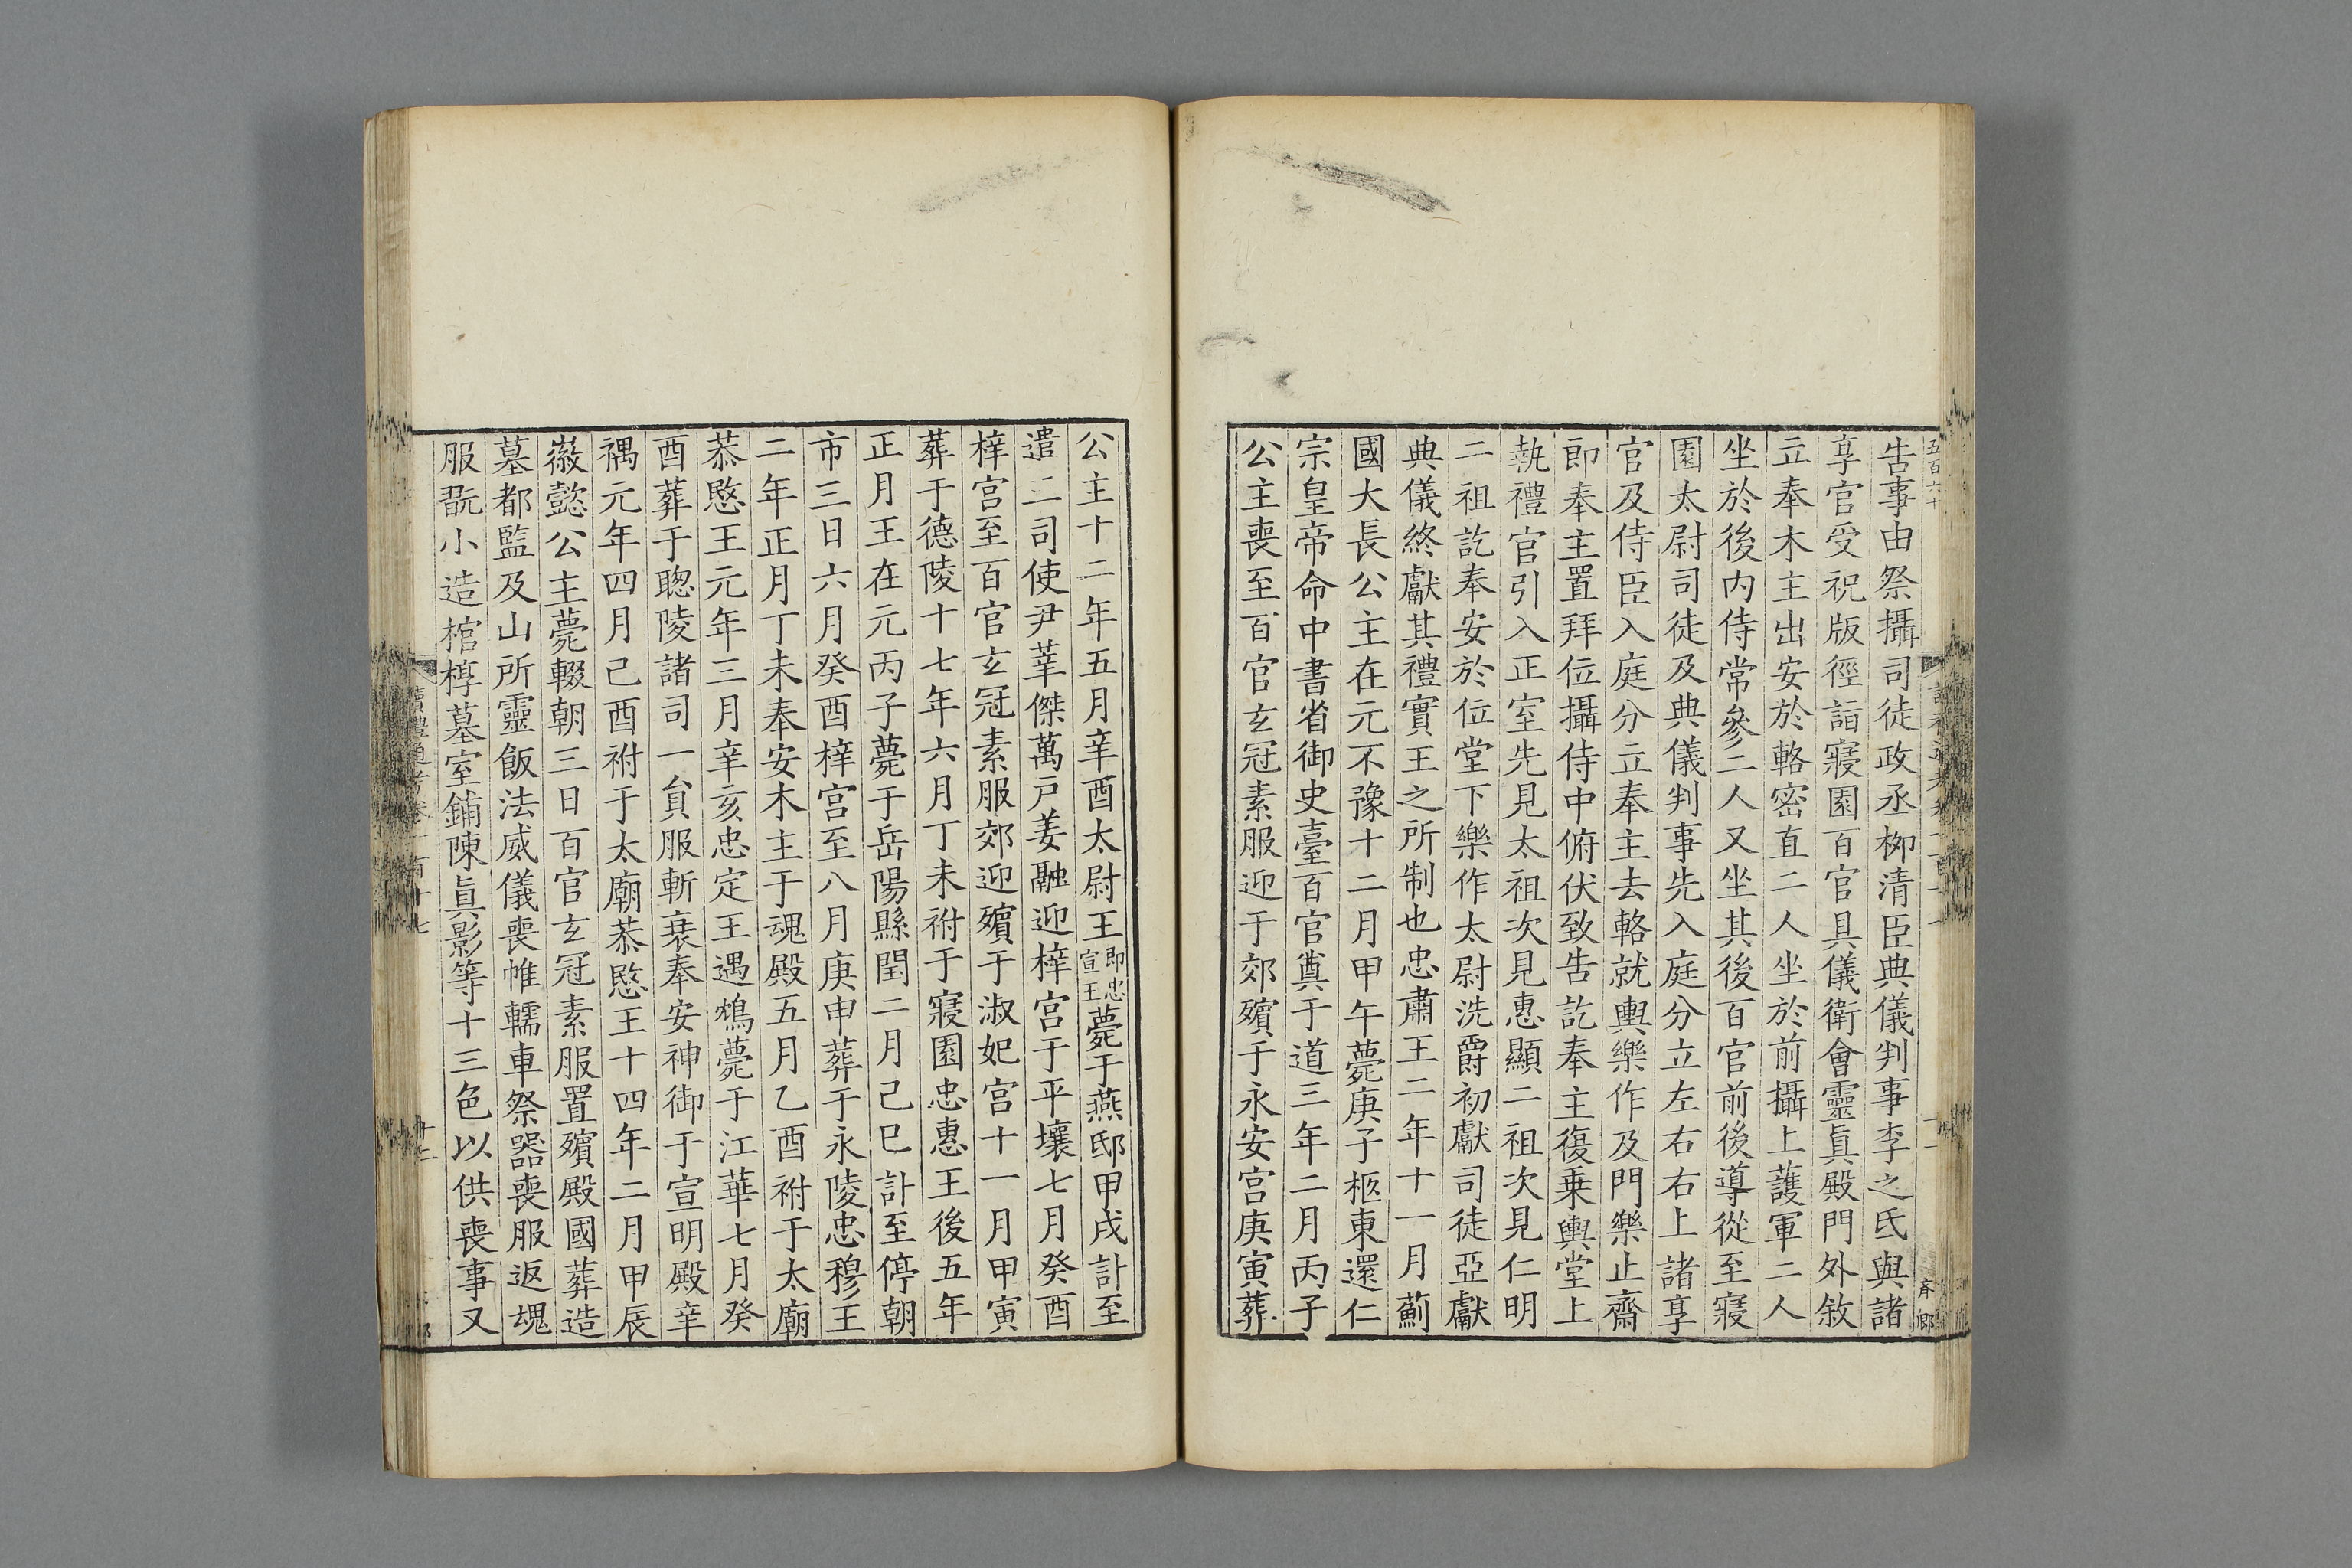 五百六十
告事由祭攝司徒政丞柳清臣典儀判事李之氐與諸
享官受祝版徑詣寢園百官具儀衛會靈眞殿門外敘
立奉木主出安於輅密直二人坐於前攝上護軍二人
坐於後內侍常參二人又坐其後百官前後導從至寢
園太尉司徒及典儀判事先入庭分立左右右上諸享
官及侍臣入庭分立奉主去輅就輿樂作及門樂止齋
即奉主置拜位攝侍中俯伏致告訖奉主復乗輿堂上
執禮官引入正室先見太祖次見惠顯二祖次見仁明
二祖訖奉安於位堂下樂作太尉洗爵初獻司徒亞獻
典儀終獻其禮實王之所制也忠肅王二年十一月薊
國大長公主在元不豫十二月甲午薨庚子柩東還仁
宗皇帝命中書省御史臺百官奠于道三年二月丙子
公主喪至百官玄冠素服迎于郊殯于永安宮庚寅葬
公主十二年五月辛酉太尉王即忠宣王薨于燕邸甲戌訃至
遣二司使尹莘傑萬戸姜融迎梓宮于平壤七月癸酉
梓宮至百官玄冠素服郊迎殯于淑妃宮十一月甲寅
葬于德陵十七年六月丁未祔于寢園忠惠王後五年
正月王在元丙子薨于岳陽縣閏二月己巳訃至停朝
市三日六月癸酉梓宮至八月庚申葬于永陵忠穆王
二年正月丁未奉安木主于魂殿五月乙酉祔于太廟
恭愍王元年三月辛亥忠定王遇鴆薨于江華七月癸
酉葬于聰陵諸司一員服斬衰奉安神御于宣明殿辛
禑元年四月己酉祔于太廟恭愍王十四年二月甲辰
徽懿公主薨輟朝三日百官玄冠素服置殯殿國葬造
墓都監及山所靈飯法威儀喪帷轜車祭器喪服返魂
服翫小造棺槨墓室鋪陳眞影等十三色以供喪事又
讀禮通考卷一百十七